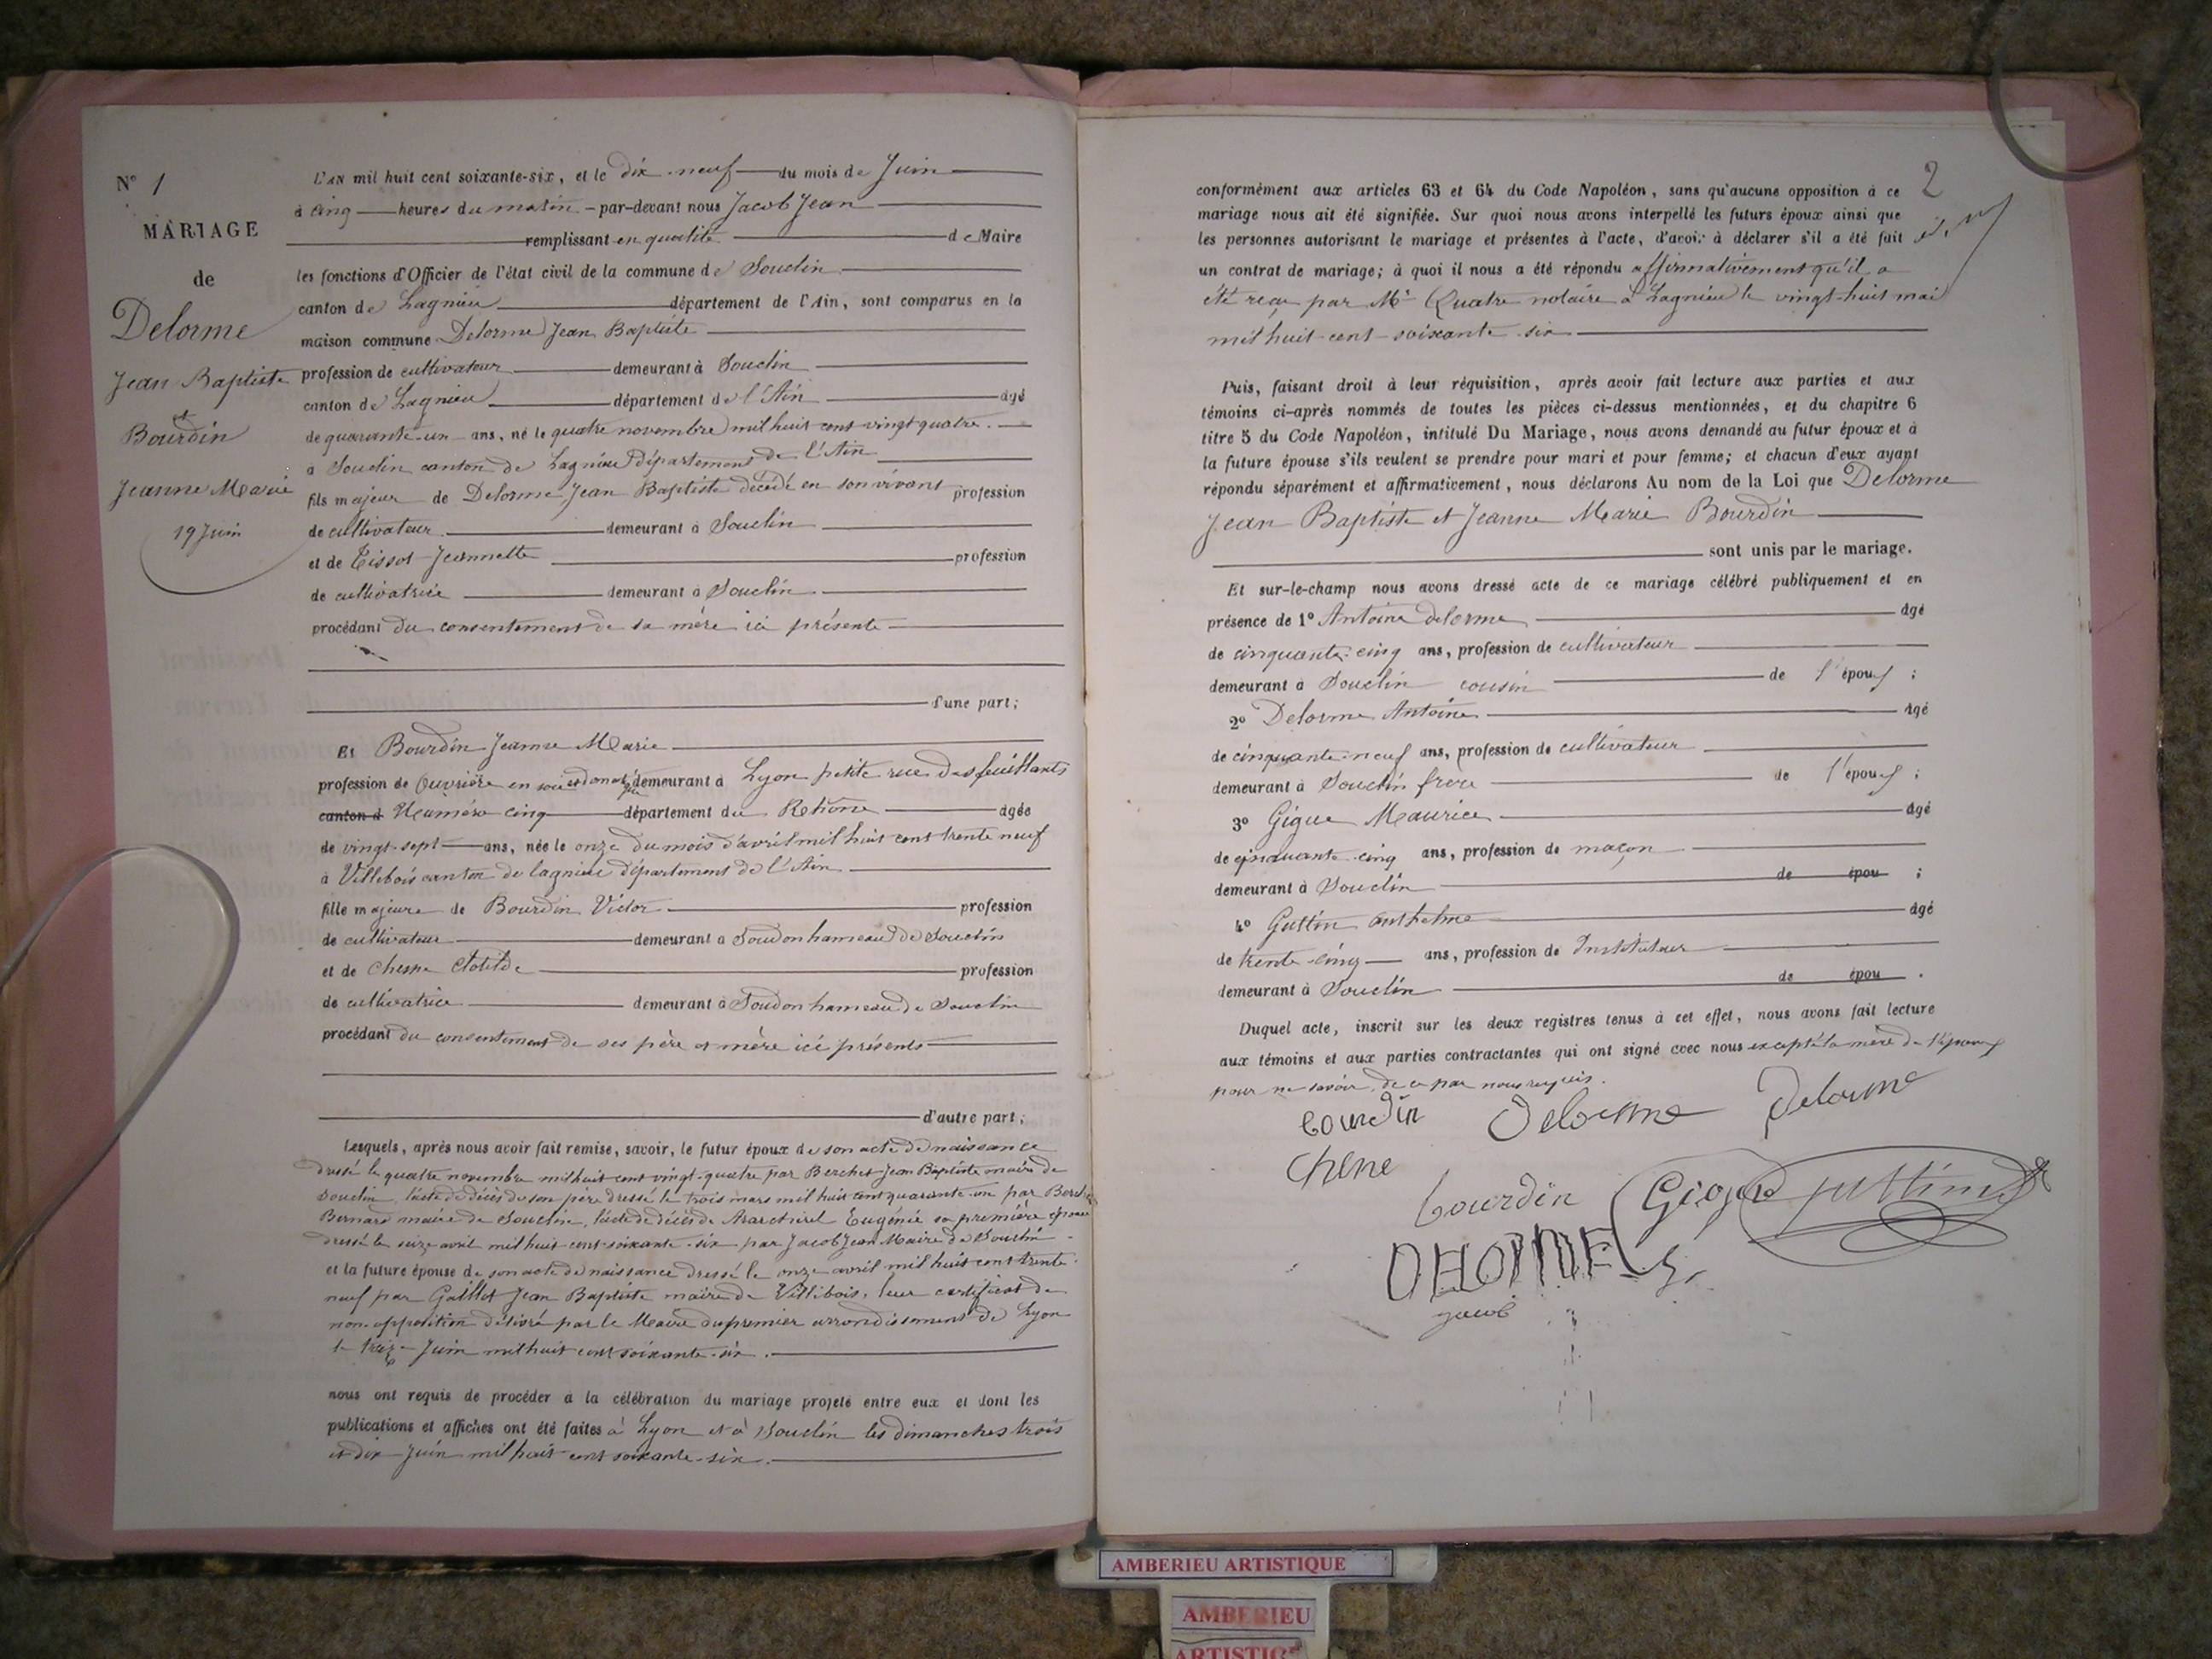 N° 1
MARIAGE
de
Delorme
Jean Baptiste
et
Bourdin
Jeanne Marie
19 Juin
L'AN mil huit cent soixante-six, et le dix neuf du mois de Juin
à cinq heures du matin par-devant nous Jacob Jean
remplissant en qualité de Maire
les fonctions d'Officier de l'état civil de la commune de Souclin
canton de Lagnieu département de l'Ain, sont comparus en la
maison commune Delorme Jean Baptiste
profession de cultivateur demeurant à Souclin
canton de Lagnieu département de l'Ain âgé
de quarante-un ans, né le quatre novembre mil huit cent vingt quatre.
à Souclin canton de Lagnieu département de l'Ain
fils majeur de Delorme Jean Baptiste décédé en son vivant profession
de cultivateur demeurant à Souclin
et de Tissot Jeannette profession
de cultivatrice demeurant à Souclin
procédant du consentement de sa mère ici présente
d'une part;
Et Bourdin Jeanne Marie
profession de Ouvrière en soie demeurant à Lyon petite rue des feuillants
canton d Numéro cinq département du Rhône âgée
de vingt-sept ans, née le onze du mois d'avril mil huit cent trente neuf
à Villebois canton de lagnieu département de l'Ain
fille majeure de Bourdin Victor profession
de cultivateur demeurant à Soudon hameau de Souclin
et de Chesne Clotilde profession
de cultivatrice demeurant à Soudon hameau de Souclin
procédant du consentement de ses père et mère ici présents
d'autre part;
Lesquels, après nous avoir fait remise, savoir, le futur époux de son acte de naissance
dressé le quatre novembre mil huit cent vingt-quatre par Berchet Jean Baptiste maire de
Souclin, l'acte de décès de son père dressé le trois mars mil huit cent quarante-un par
Bernard maire de Souclin, l'acte de décès de Eugénie sa première épouse
dressé le seize avril mil huit cent soixante-six par Jacob Jean Maire de Souclin
et la future épouse de son acte de naissance dressé le onze avril mil huit cent trente
neuf par Gaillot Jean Baptiste maire de Villebois, leur certificat de
non-opposition délivré par le Maire du premier arrondissement de Lyon
le treize Juin mil huit cent soixante-six.
nous ont requis de procéder à la célébration du mariage projeté entre eux et dont les
publications et affiches ont été faites à Lyon et à Souclin les dimanches trois
et dix Juin mil huit cent soixante-six.
2
conformément aux articles 63 et 64 du Code Napoléon, sans qu'aucune opposition à ce
mariage nous ait été signifiée. Sur quoi nous avons interpellé les futurs époux ainsi que
les personnes autorisant le mariage et présentes à l'acte, d'avoir à déclarer s'il a été fait
un contrat de mariage; à quoi il nous a été répondu affirmativement qu'il a
été reçu par Me Quatre notaire à Lagnieu le vingt-huit mai
mil huit-cent-soixante six
Puis, faisant droit à leur réquisition, après avoir fait lecture aux parties et aux
témoins ci-après nommés de toutes les pièces ci-dessus mentionnées, et du chapitre 6
titre 5 du Code Napoléon, intitulé Du Mariage, nous avons demandé au futur époux et à
la future épouse s'ils veulent se prendre pour mari et pour femme; et chacun d'eux ayant
répondu séparément et affirmativement, nous déclarons Au nom de la Loi que Delorme
Jean Baptiste et Jeanne Marie Bourdin
sont unis par le mariage.
Et sur-le-champ nous avons dressé acte de ce mariage célébré publiquement et en
présence de 1° Antoine delorme âgé
de cinquante-cinq ans, profession de cultivateur
demeurant à Souclin cousin de l'époux ;
2° Delorme Antoine âgé
de cinquante-neuf ans, profession de cultivateur
demeurant à Souclin frère de l'époux ;
3° Gigue Maurice âgé
de cinquante-cinq ans, profession de maçon
demeurant à Souclin de épou ;
4° Guttin anthelme âgé
de trente-cinq ans, profession de Instituteur
demeurant à Souclin de épou .
Duquel acte, inscrit sur les deux registres tenus à cet effet, nous avons fait lecture
aux témoins et aux parties contractantes qui ont signé avec nous excepté la mère de l'époux
pour ne savoir, de ce par nous requis.
bourdin Delorme Delorme
Chene
bourdin guttin
jacob
AMBERIEU ARTISTIQUE
AMBERIEU